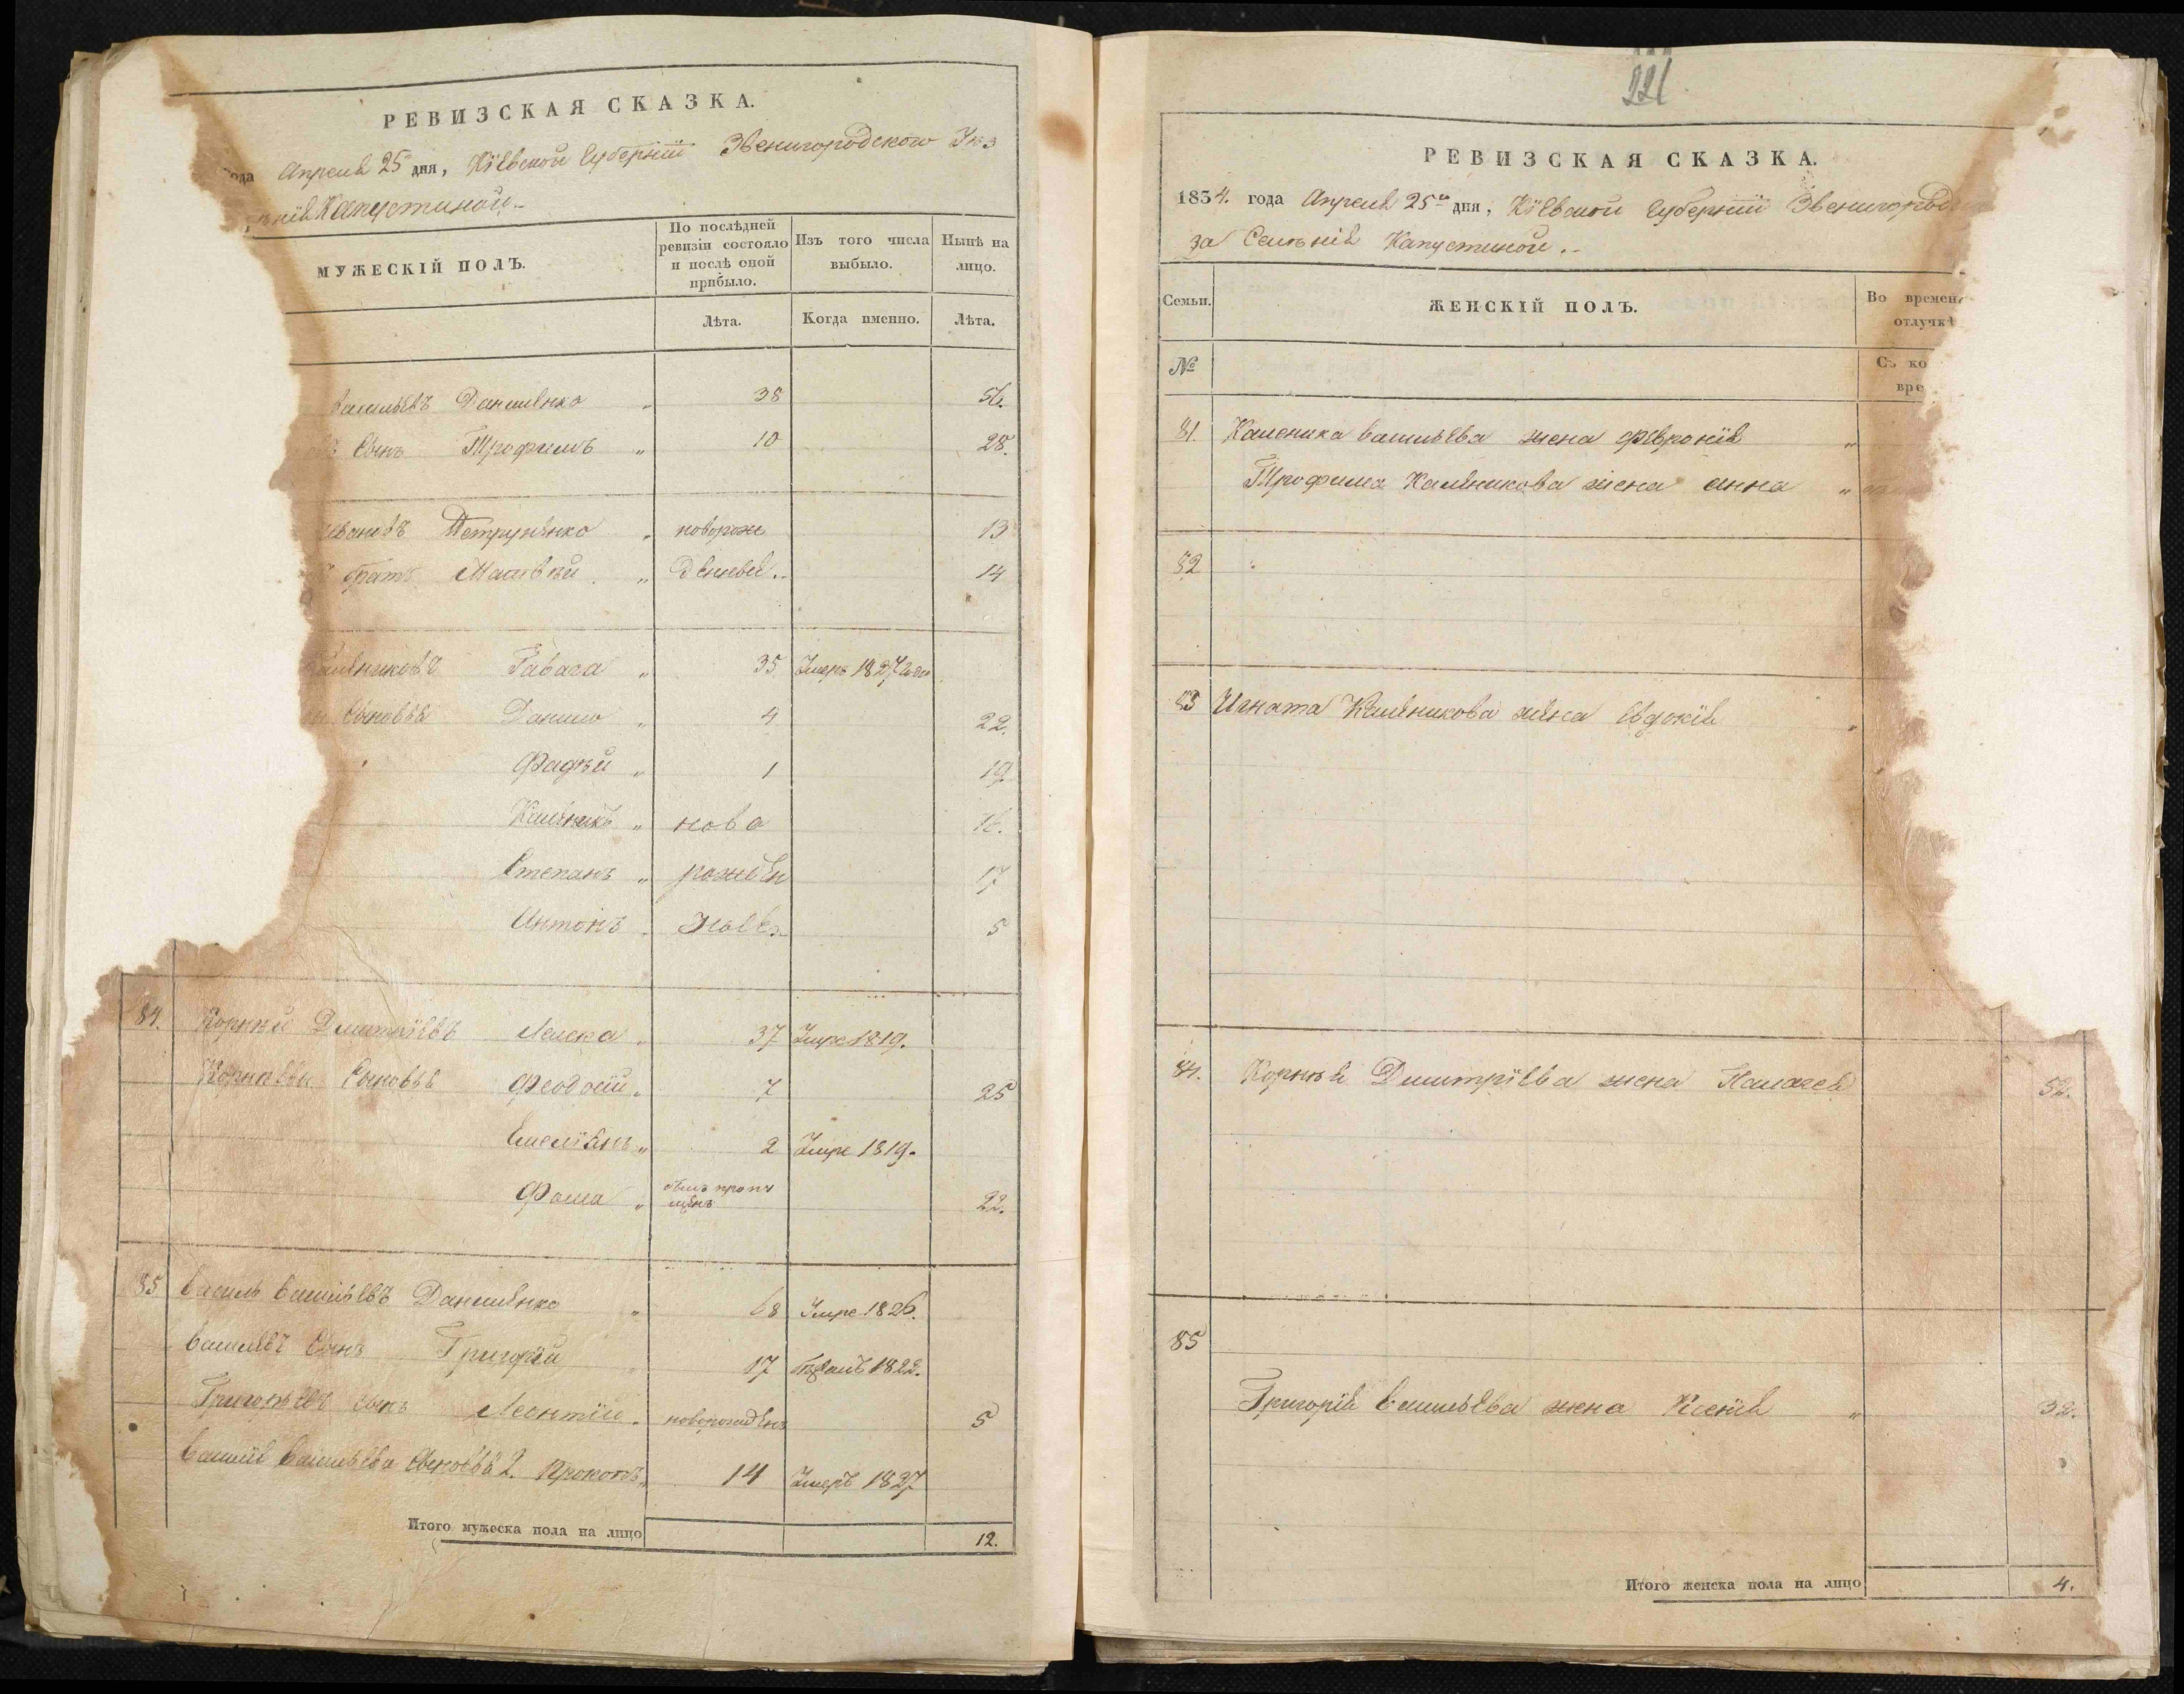 РЕВИЗСКАЯ СКАЗКА.
года Апреля 25 дня, Кіевской Губерніи Звенигородского Уѣз
Капустиной
МУЖЕСКІЙ ПОЛЪ.
По послѣдней ревизіи состояло и послѣ оной прибыло.
Изъ того числа выбыло.
Нынѣ на лицо.
Лѣта.
Когда именно.
Лѣта.
Васильевъ Даниленко " 38 56.
Сынъ Трофимъ " 10 28.
Ивановъ Петруненко " новорож 13
братъ Матвѣй " денные 14
Каленковъ 35 Умеръ 1827 года
Сыновья Данило " 4 22.
Фадѣй " 1 19
Каленикъ " ново 16.
Степанъ " рожден 17
Антонъ ные 5
84. Корнѣй Дмитріевъ 37 Умре 1819.
Корнѣевы Сыновья Феодосій " 7 25
Емеліянъ " 2 Умре 1819.
Фома " былъ пропу
щенъ 22.
85 Василь Васильевъ Даниленко " 68 Умре 1826.
Васильевъ Сынъ Григорій " 17 1822.
Григорьевъ сынъ Леонтій новорожденъ 5
Василія Васильева Сыновья 2. Прокопъ " 14 Умеръ 1827
Итого мужеска пола на лицо 12.
221
РЕВИЗСКАЯ СКАЗКА.
1834. года Апреля 25го дня, Кіевской Губерніи Звенигород
за Селѣнія Капустиной.
Семьи.
ЖЕНСКІЙ ПОЛЪ.
Во времен
отлучкѣ
№
Съ ко
вре
81. Каленика Васильева жена Февронія "
Трофима Каленикова жена Анна "
82
83 Игната Каленикова жена Евдокія "
84. Корнѣя Дмитріева жена Палагея 52.
85
Григорія Васильева жена Ксенія " 32.
Итого женска пола на лицо 4.